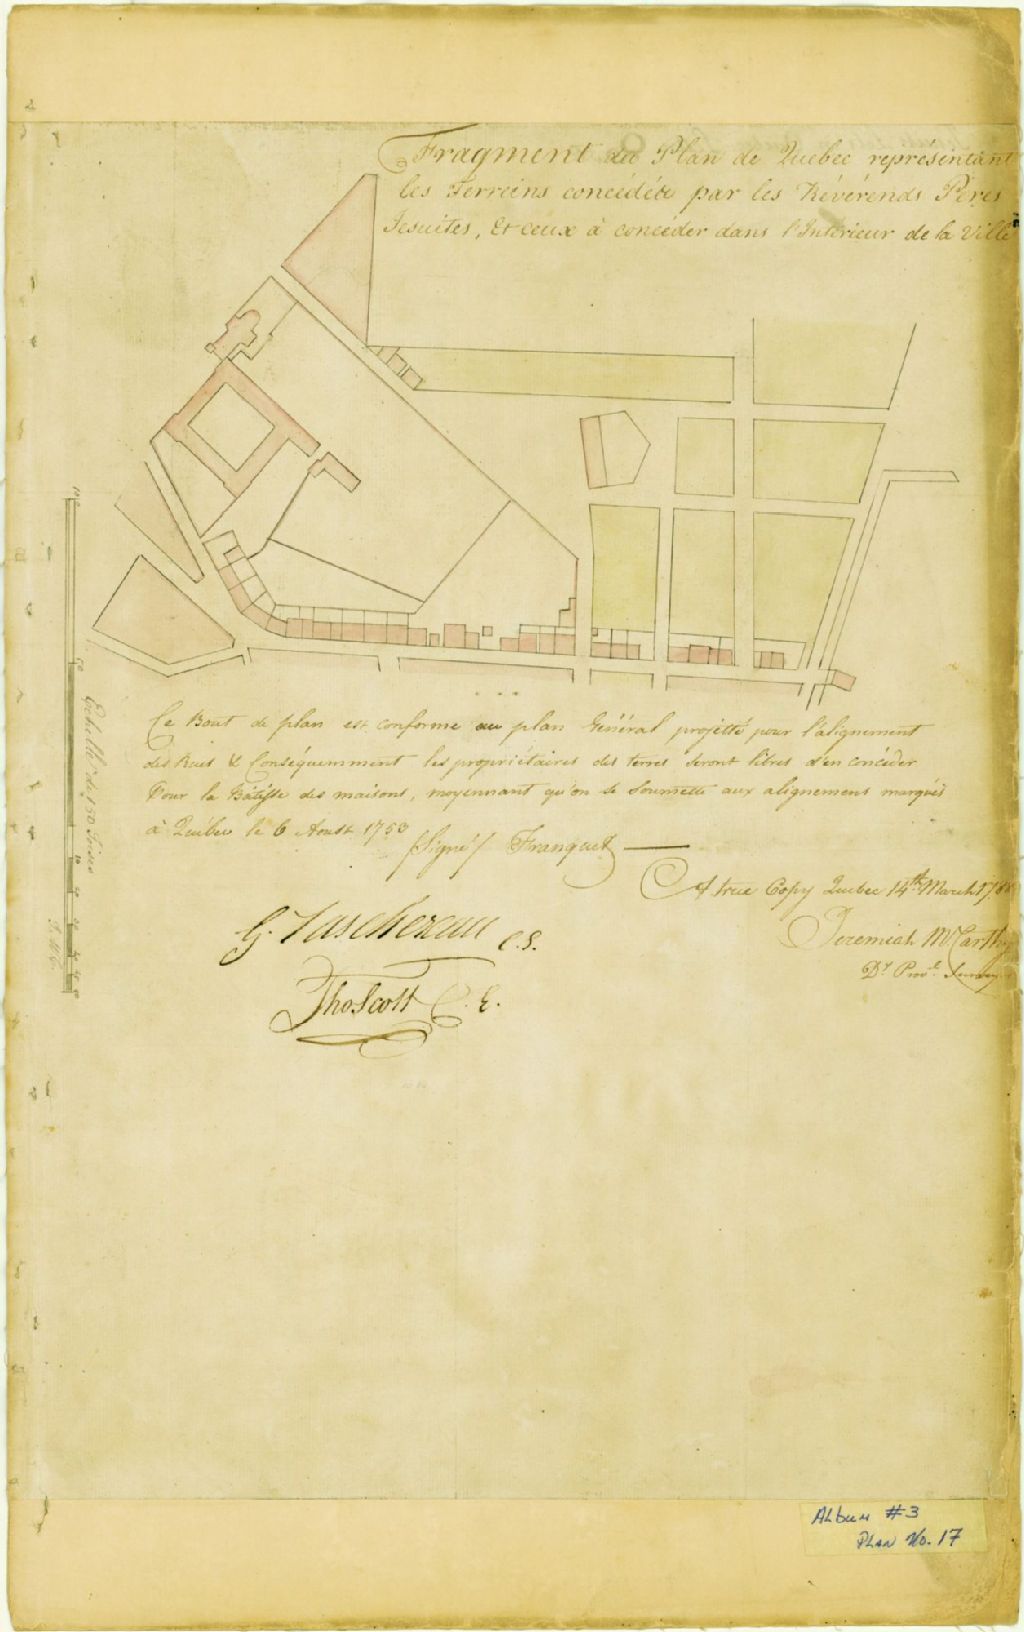 Fragment du Plan de Quebec représentant
les Terreins concédéés par les Révérends Pères
Jesuites, Et ceux à concéder dans l'Intérieur de la Ville
Ce Bout de plan est conforme au plan Général projetté pour l'alignement
des Rues & Conséquemment les propriétaires des terres seront libres d'en concéder
Pour la Bâtisse des maisons, moyennant qu'on se soumette aux alignemens marqués
à Québec le 6 Aoust 1753
/Signé/ Franquet
A true Copy Quebec 14th March 17
Jeremiah McCarthy
Dy Provl Survey
G. Taschereau C.S.
Tho Scott C. E.
Echelle de 150 Toises
J. McC.
50
10
Album #3
Plan No. 17